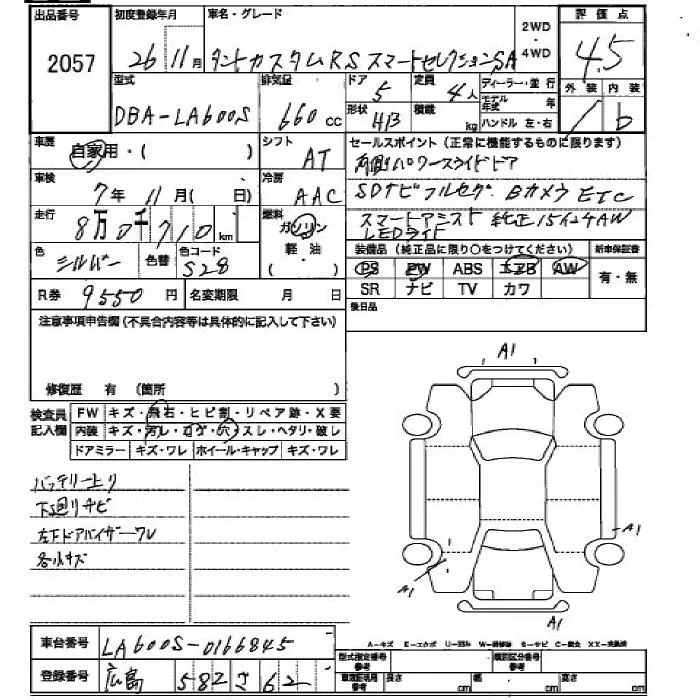 出品番号 初度登録年月 車名・グレード 2WD 評価点
2057 26 11月 タントカスタムRS スマートセレクションSA ・ 4WD 4.5
型式 排気量 ドア 定員 ディーラー・並行 外装 内装
DBA-LA600S 660 cc 5 4人 モデル年式 年 / b
形状 HB 積載 kg ハンドル 左・右
車歴 自家用・( ) シフト AT セールスポイント (正常に機能するものに限ります)
両側パワースライドドア
車検 7年 11月( 日) 冷房 AAC SDナビ フルセグ Bカメラ ETC
走行 8万0千710km 燃料 ガソリン スマートアシスト 純正15インチAW
LEDライト
軽・油
・( )
色 シルバー 色替 色コード S28 装備品 (純正品に限り○をつけてください) 新車保証書
PS PW ABS エアB AW 有・無
R券 9550円 名変期限 月 日 SR ナビ TV カワ
注意事項申告欄(不具合内容等は具体的に記入して下さい) 後日品
修復歴 有 (箇所 )
A1
検査員記入欄 FW キズ・飛石・ヒビ割・リペア跡・X要
内装 キズ・汚レ・コゲ・穴・スレ・ヘタリ・破レ
ドアミラー キズ・ワレ ホイール・キャップ キズ・ワレ
バッテリー上り
下回りサビ
左下ドアバイザーワレ
各小キズ
A1
A1
A1
A-キズ E-エクボ U-凹み W-補修跡 S-サビ C-腐食 XX-交換済
車台番号 LA600S-0166845 型式指定番号 類別区分番号
参考 参考
登録番号 広島 582 さ 62 車庫証明用参考 長さ cm 幅 cm 高さ cm